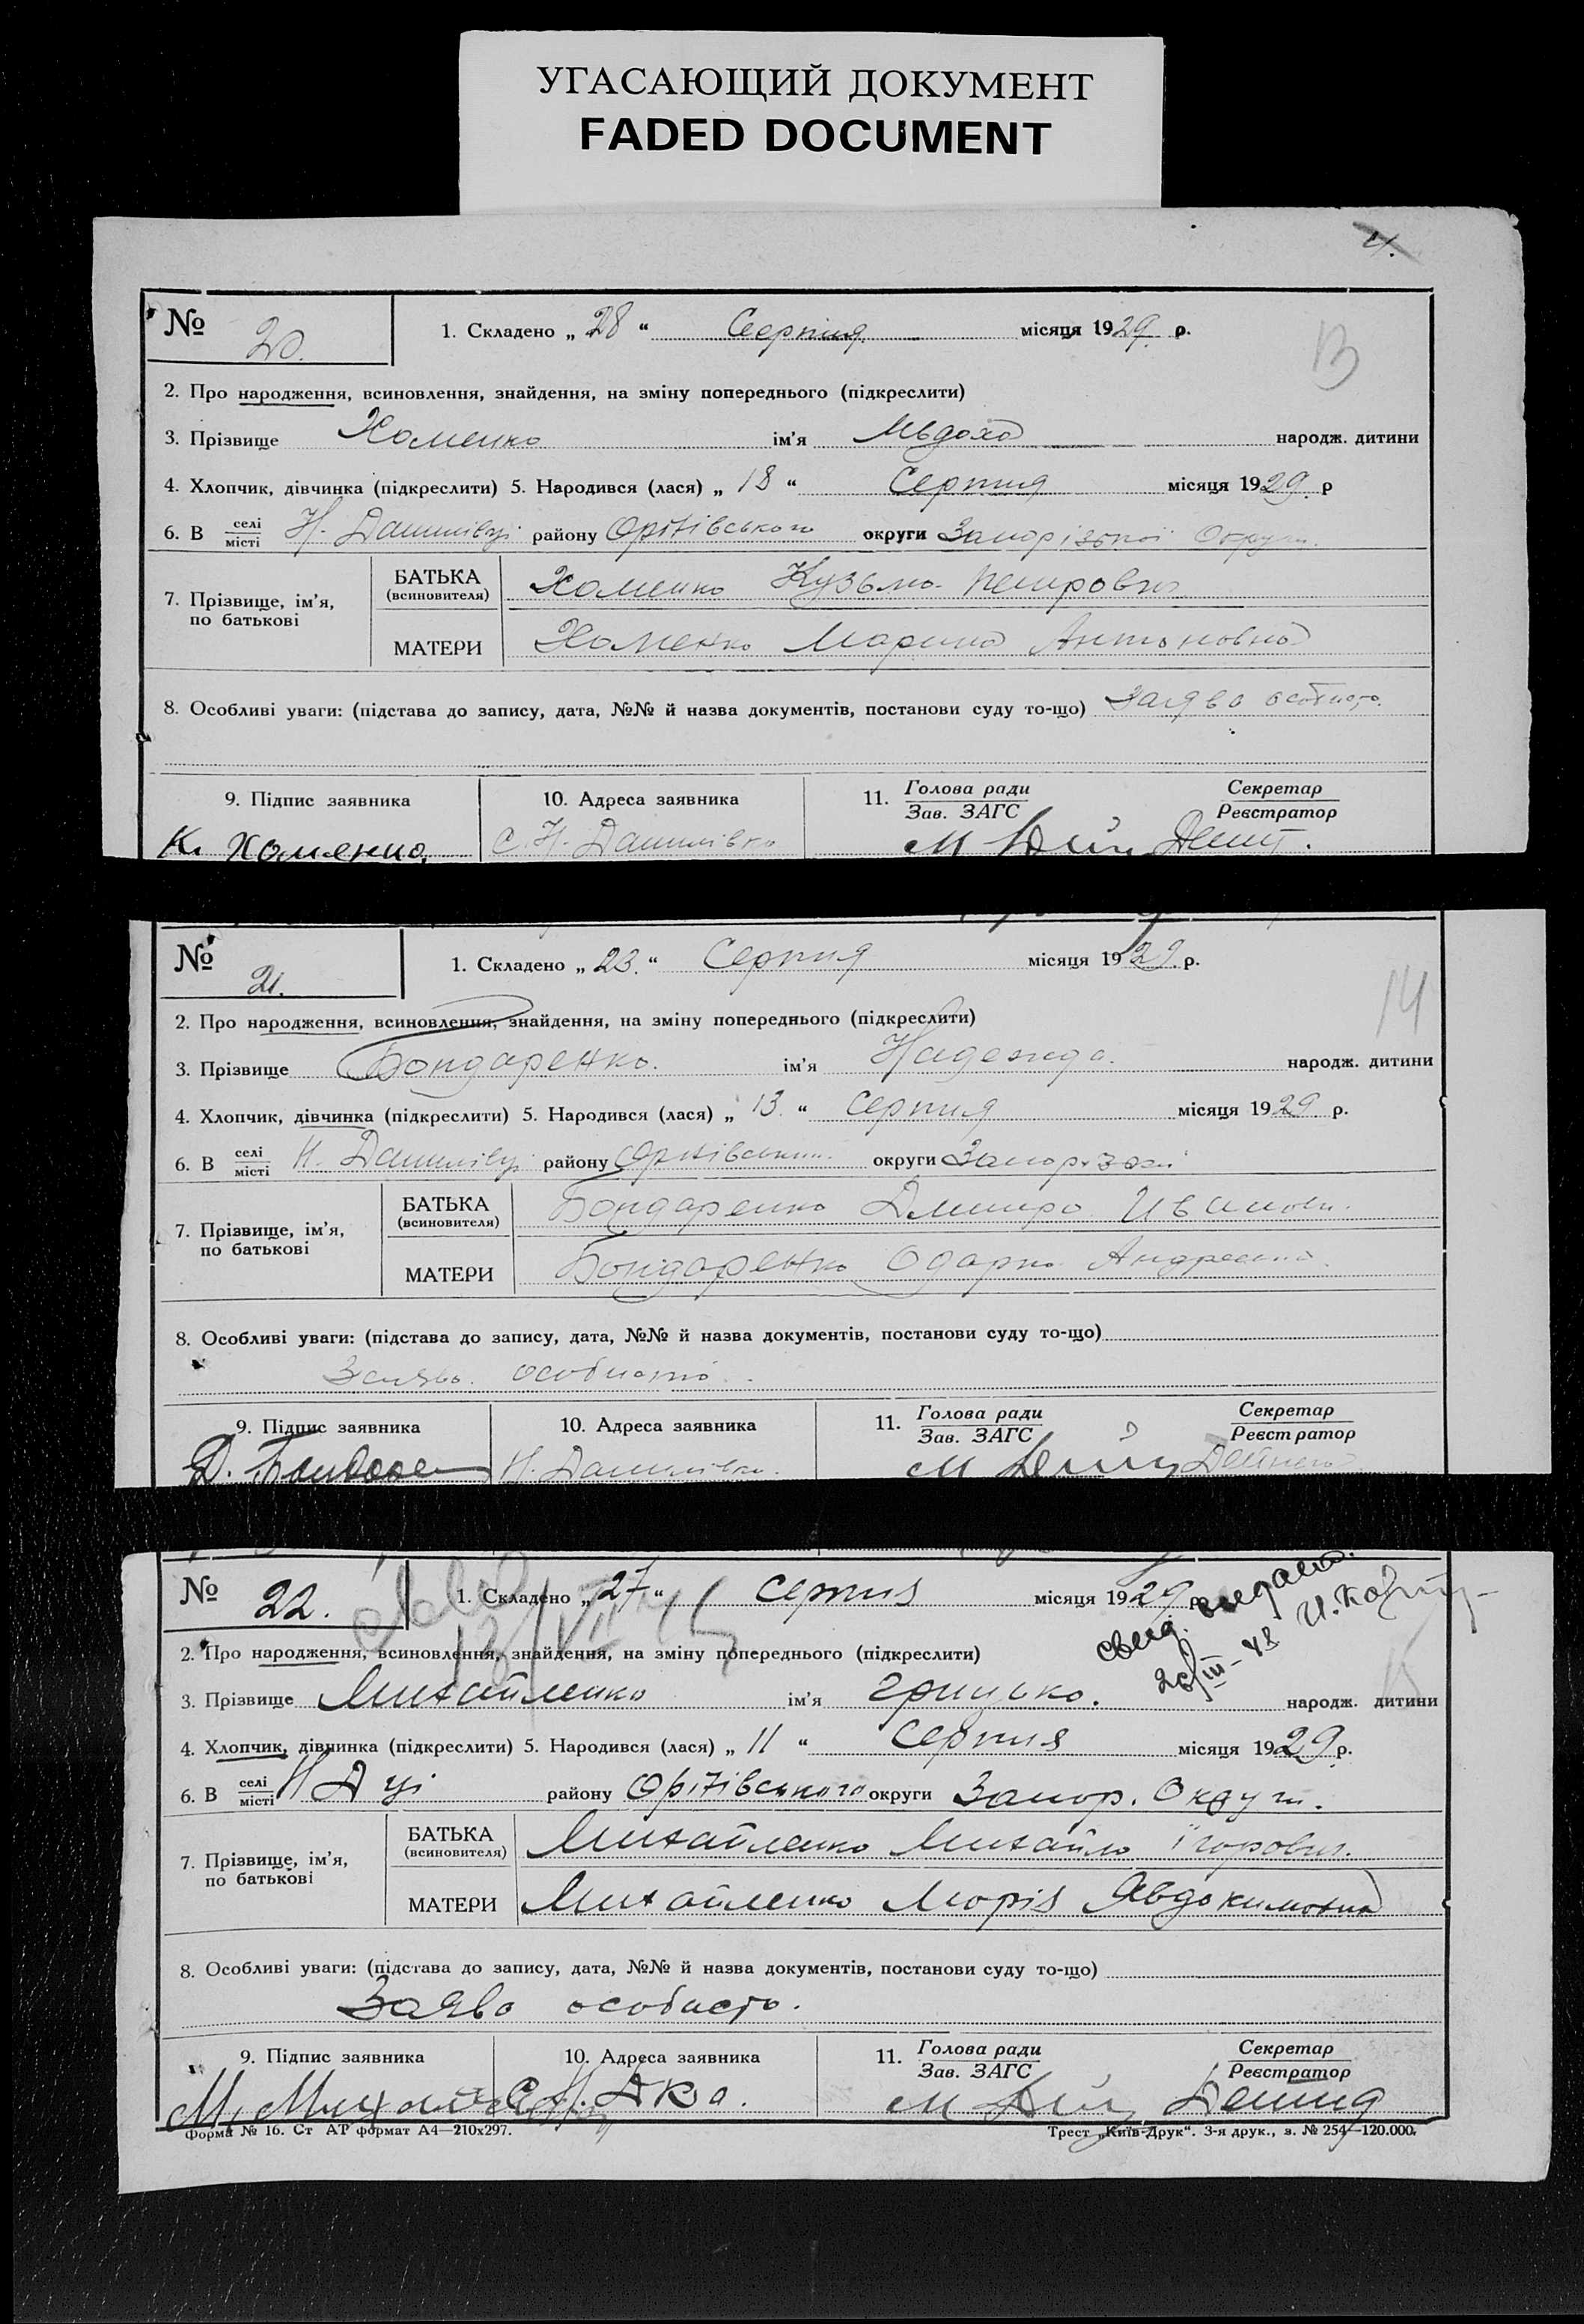 УГАСАЮЩИЙ ДОКУМЕНТ
FADED DOCUMENT
№ 20.
1. Складено „ 28 “ Серпня місяця 1929 р.
13
2. Про народження, всиновлення, знайдення, на зміну попереднього (підкреслити)
3. Прізвище Хоменко ім'я народж. дитини
4. Хлопчик, дівчинка (підкреслити) 5. Народився (лася) „ 18 “ Серпня місяця 1929 р
6. В селі місті Н. Данилівці району Оріхівського округи Запорізької Округи.
7. Прізвище, ім'я, по батькові
БАТЬКА (всиновителя) Хоменко Кузьма Петрович
МАТЕРИ Хоменко Марина Антоновна
8. Особливі уваги: (підстава до запису, дата, №№ й назва документів, постанови суду то-що) Заява особисто.
9. Підпис заявника 10. Адреса заявника 11. Голова ради Зав. ЗАГС Секретар Реєстратор
К. Хоменко С. Н. Данилівка
№ 21.
1. Складено „ 23. “ Серпня місяця 1929. р.
14
2. Про народження, всиновлення, знайдення, на зміну попереднього (підкреслити)
3. Прізвище Бондаренко. ім'я Надежда. народж. дитини
4. Хлопчик, дівчинка (підкреслити) 5. Народився (лася) „ 13. “ Серпня місяця 1929 р.
6. В селі місті Н. Данилівці району округи
7. Прізвище, ім'я, по батькові
БАТЬКА (всиновителя) Бондаренко Дмитро Иванов.
МАТЕРИ Бондаренко Одарка
8. Особливі уваги: (підстава до запису, дата, №№ й назва документів, постанови суду то-що)
Заява особисто.
9. Підпис заявника 10. Адреса заявника 11. Голова ради Зав. ЗАГС Секретар Реєстратор
Н. Данилівка.
№ 22.
1. Складено „ 27 “ Серпня місяця 1929 р.
2. Про народження, всиновлення, знайдення, на зміну попереднього (підкреслити)
3. Прізвище Михайленко ім'я Грицько. народж. дитини
4. Хлопчик, дівчинка (підкреслити) 5. Народився (лася) „ 11 “ Серпня місяця 1929 р.
6. В селі місті Н Д ці району Оріхівського округи Запор. Округи.
7. Прізвище, ім'я, по батькові
БАТЬКА (всиновителя) Михайленко Михайло Ігорович.
МАТЕРИ Михайленко Марія Явдокимовна
8. Особливі уваги: (підстава до запису, дата, №№ й назва документів, постанови суду то-що)
Заява особисто.
9. Підпис заявника 10. Адреса заявника 11. Голова ради Зав. ЗАГС Секретар Реєстратор
Форма № 16. Ст АТ формат А4—210x297.
Трест „Київ-Друк“. 3-я друк., з. № 254—120.000.